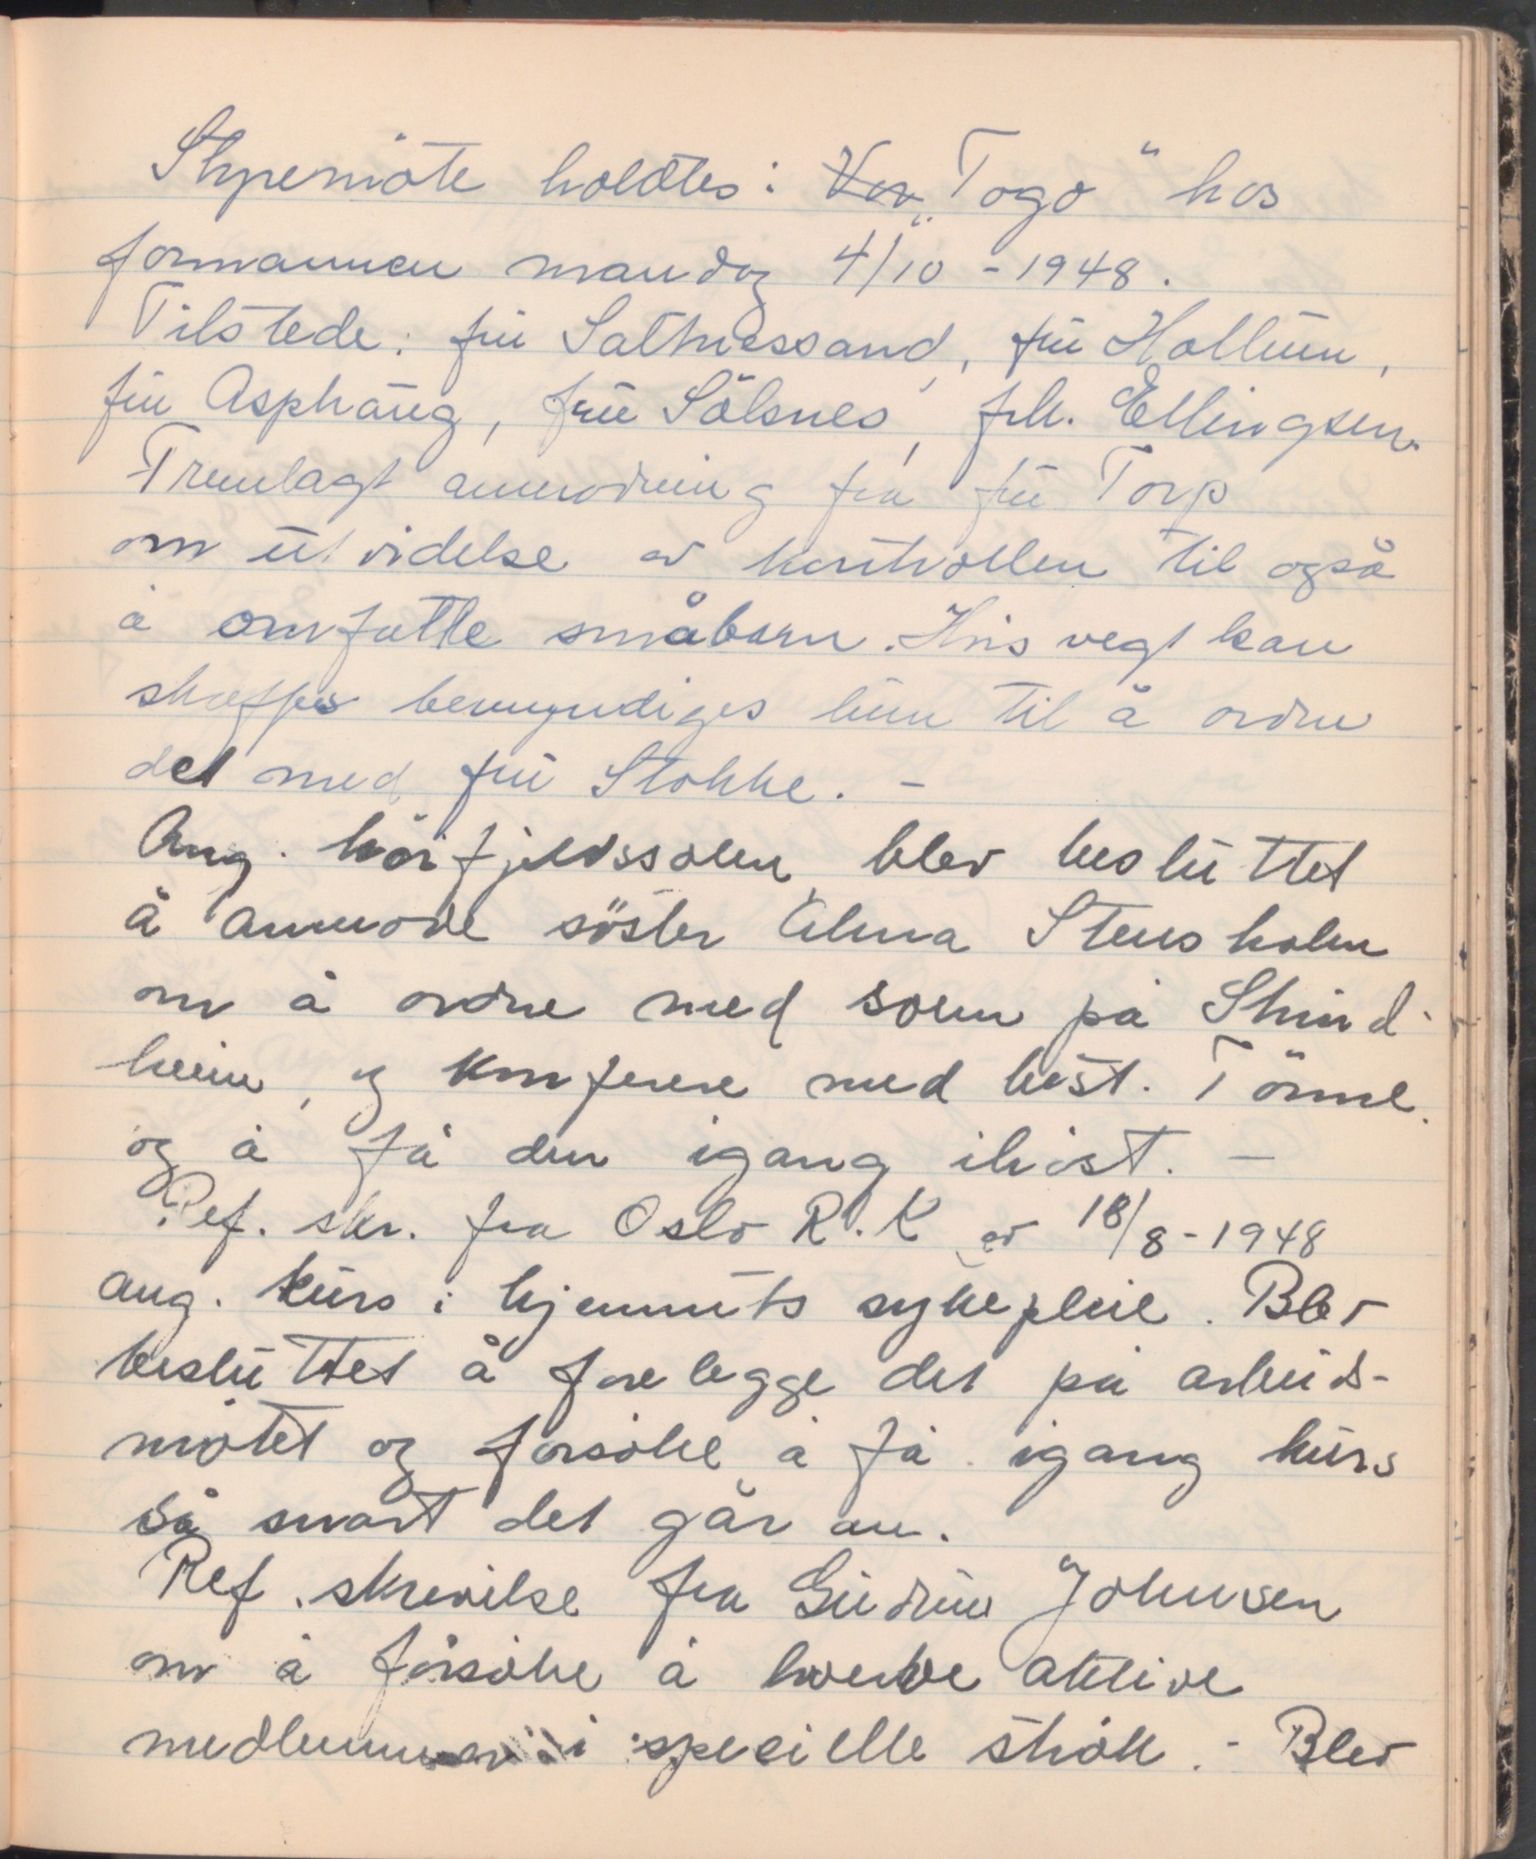 Styremöte holdtes: Vor „Togo" hos
formannen mandag 4/10 - 1948.
Tilstede: fru Sathnessand, fru Hollum,
fru Asphaug, fru Sölsnes, frk. Ellingsen.
Fremlagt anmodning fra fru Torp
om utvidelse av kontrollen til også
å omfatte småbarn. Hvis vegt kan
skaffes bemyndiges hun til å ordne
det med fru Stokke. -
Ang. höifjeldssolen blev besluttet
å anmode söster Alma Stensholm
om å ordne med solen på Skind-
heim, og konferere med best. Tönne
og å få den igang ihöst. -
Ref. skr. fra Oslo R.K av 18/8-1948
ang. kurs i hjemmets sykepleie. Blev
besluttet å forelegge det på arbeids-
mötet og forsöke å få igang kurs
så snart det går an.
Ref. skrivelse fra Gudrun Johnsen
om å forsöke å hverve aktive
medlemmer i specielle strök. - Blev